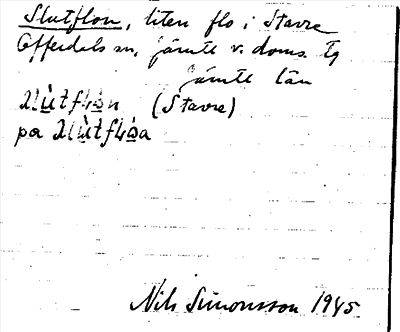 Slutflon, liten flo i Stavre
Offerdals sn, Jämtl v. doms. tg
Jämtl län
(Stavre)
pa
Nils Simonsson 1945